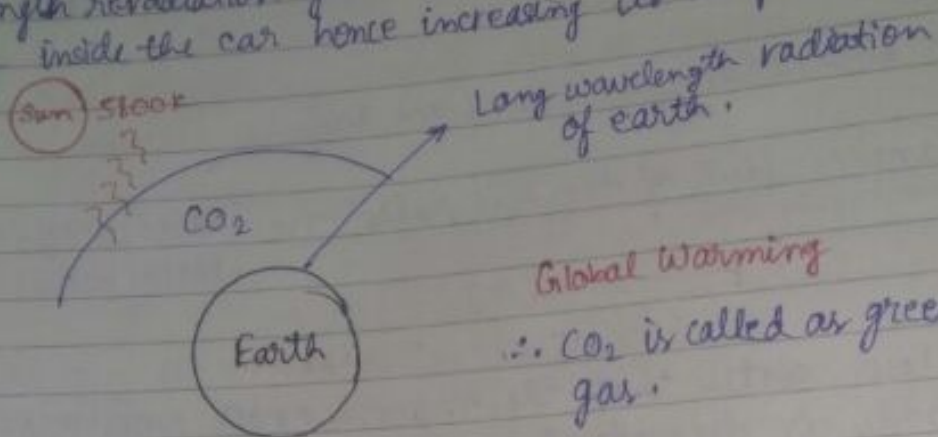 inside the car hence increasing
Sun 5800K
Long wavelength radiation
of earth.
CO2
Global Warming
Earth
∴ CO2 is called as gree
gas.